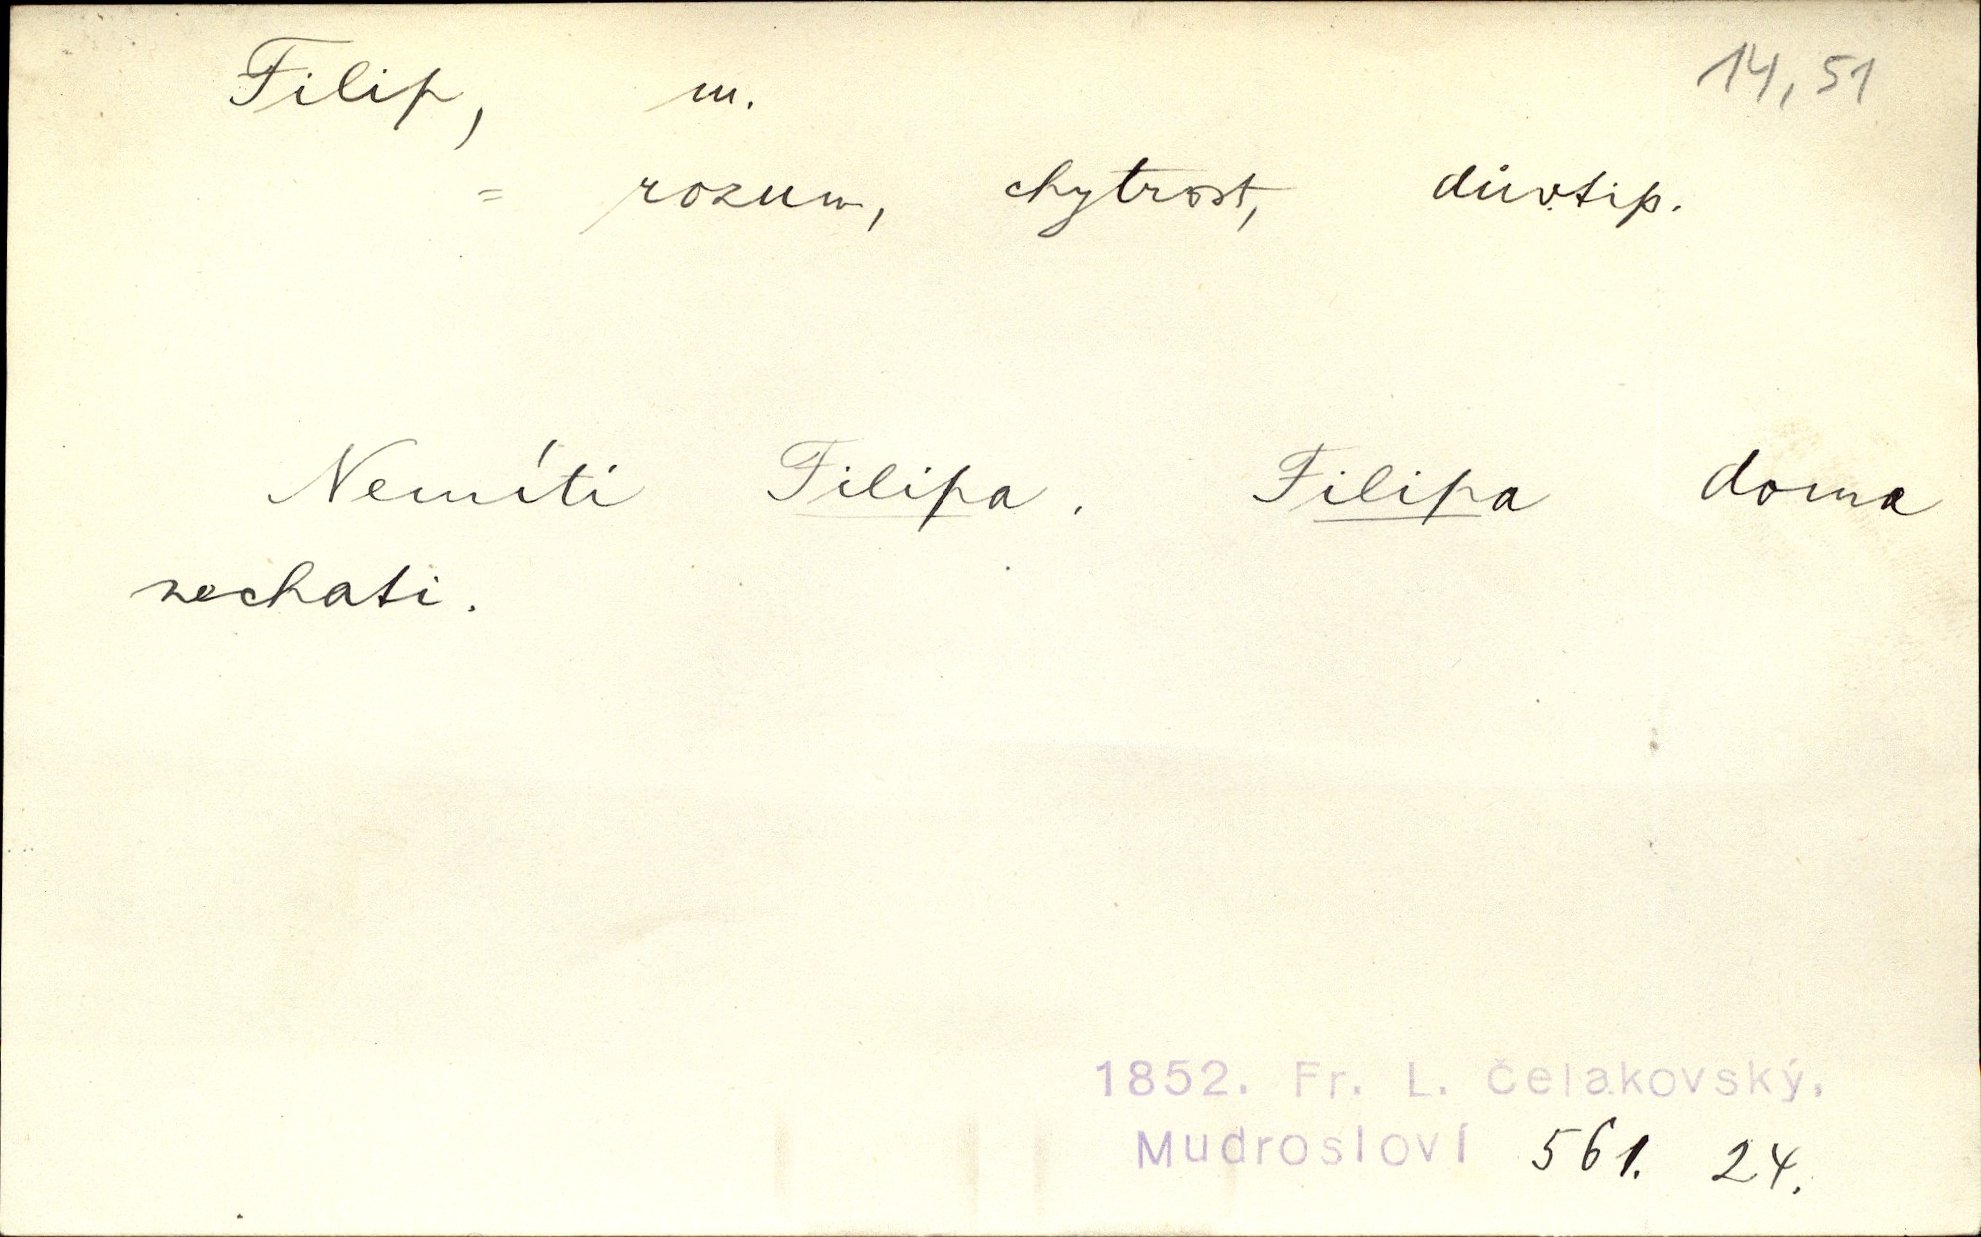 Filip, m. 14,51
= rozum, chytrost, důvtip.
Nemíti Filipa. Filipa doma
nechati.
1852. Fr. L. Čelakovský.
Mudrosloví 561. 24.